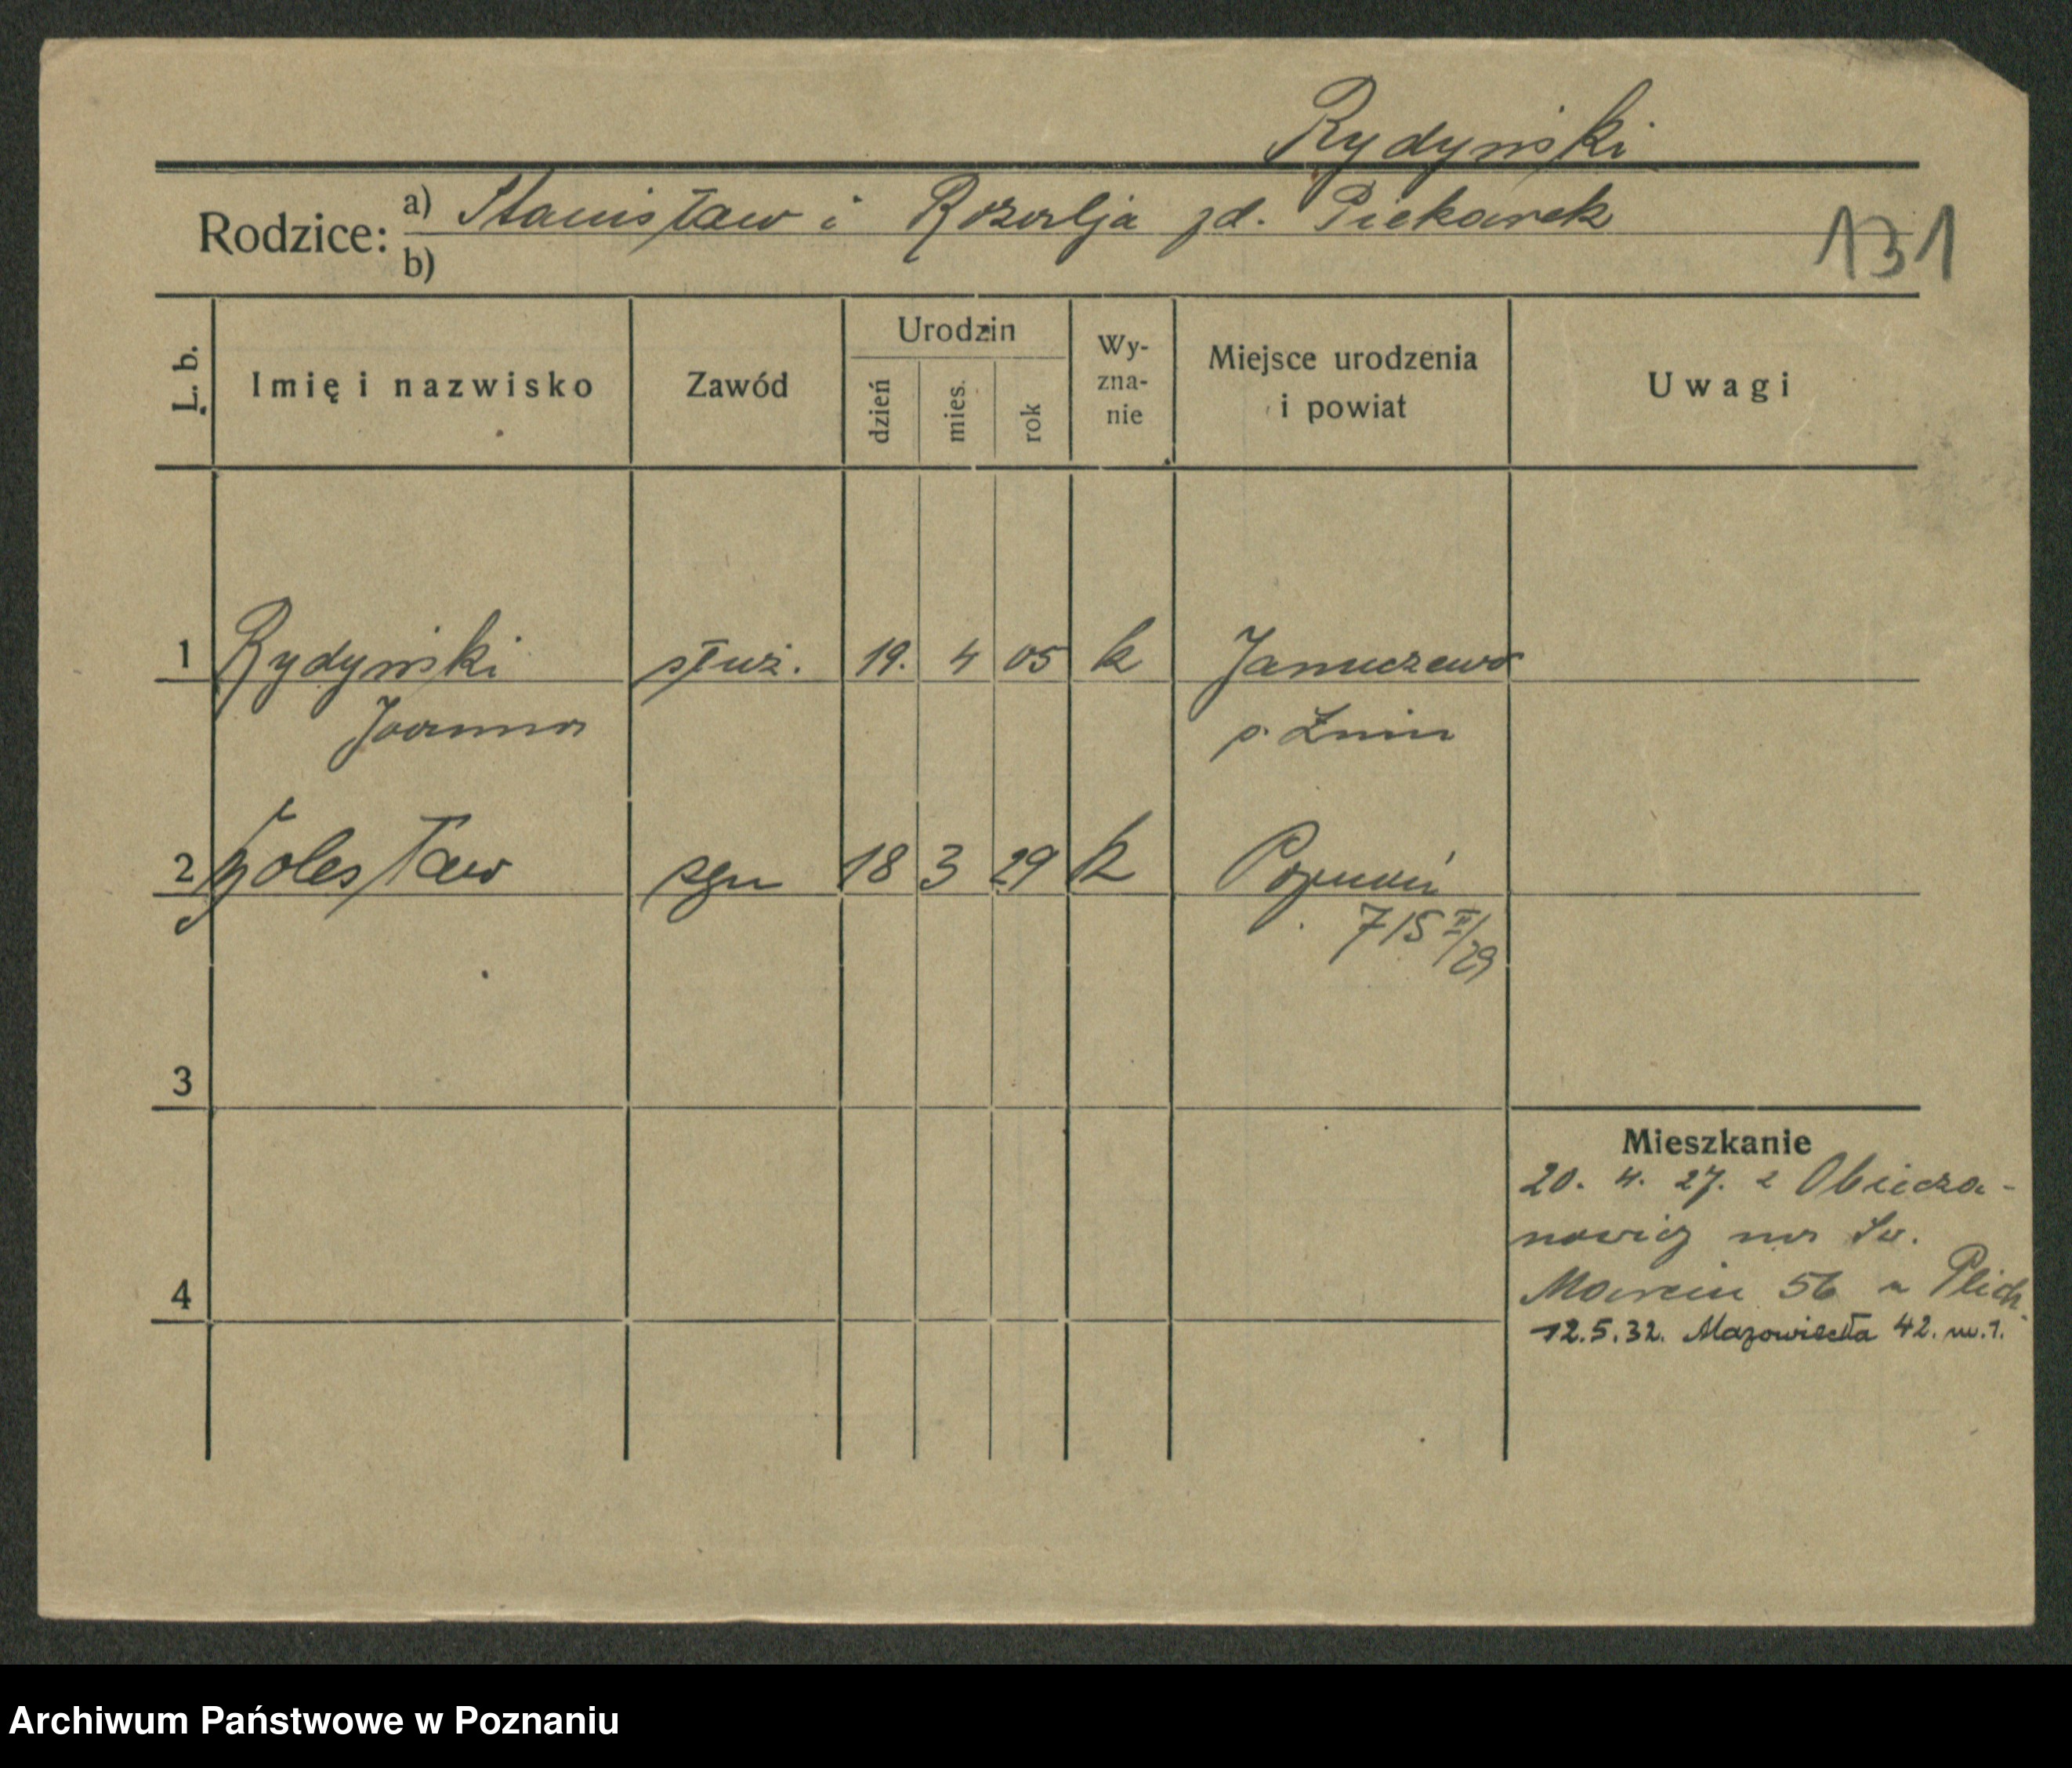 Rydyński
Rodzice: a) Stanisław i Rozalja zd. Piekarek
b)
131
L. b. Imię i nazwisko Zawód Urodzin dzień mies. rok Wy-zna-nie Miejsce urodzenia i powiat Uwagi
1 Rydyński służ. 19. 4 05 k Januszewo
Joanna p. Żnin
2 Bolesław syn 18 3 29 k Poznań
715 II/29
3
Mieszkanie
20. 4. 27. z
nr Św.
4 Marcin 56 Plich
12.5.32. Mazowiecka 42. m.1.
Archiwum Państwowe w Poznaniu